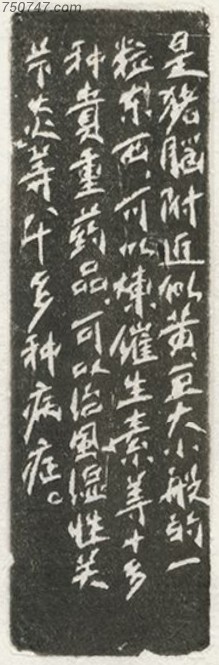 750747.com
是猪脑附近似黄豆大小般的一
粒东西，可以炼催生素等十多
种贵重药品，可以治风湿性关
节炎等八十多种病症。